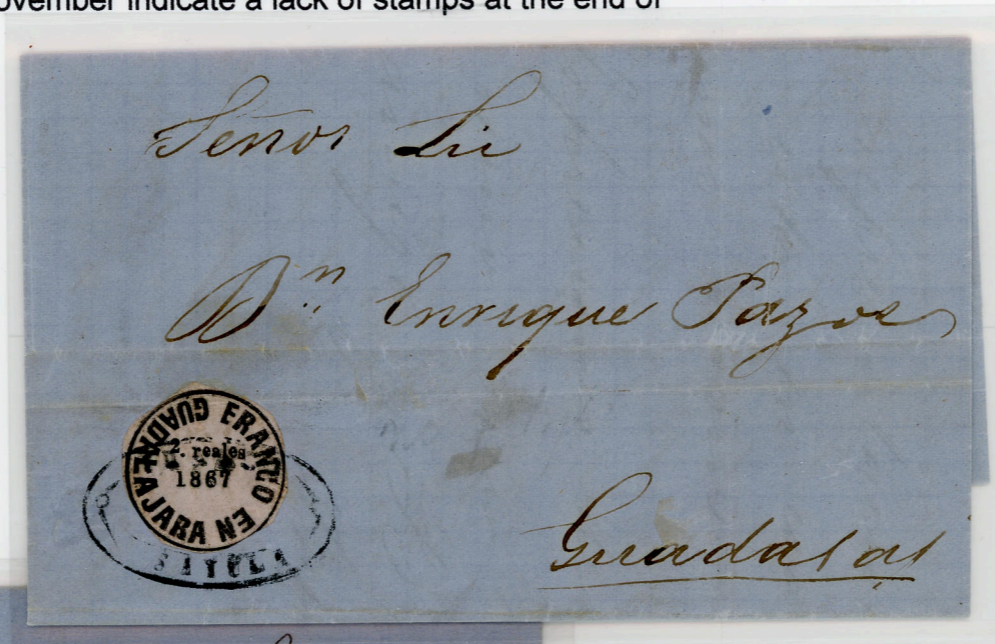 ovember indicate a lack of stamps at the end of
Señor Lic
Dn Enrique Pazos
FRANCO EN GUADALAJARA
2. reales
1867
SAYULA
Guadalaj